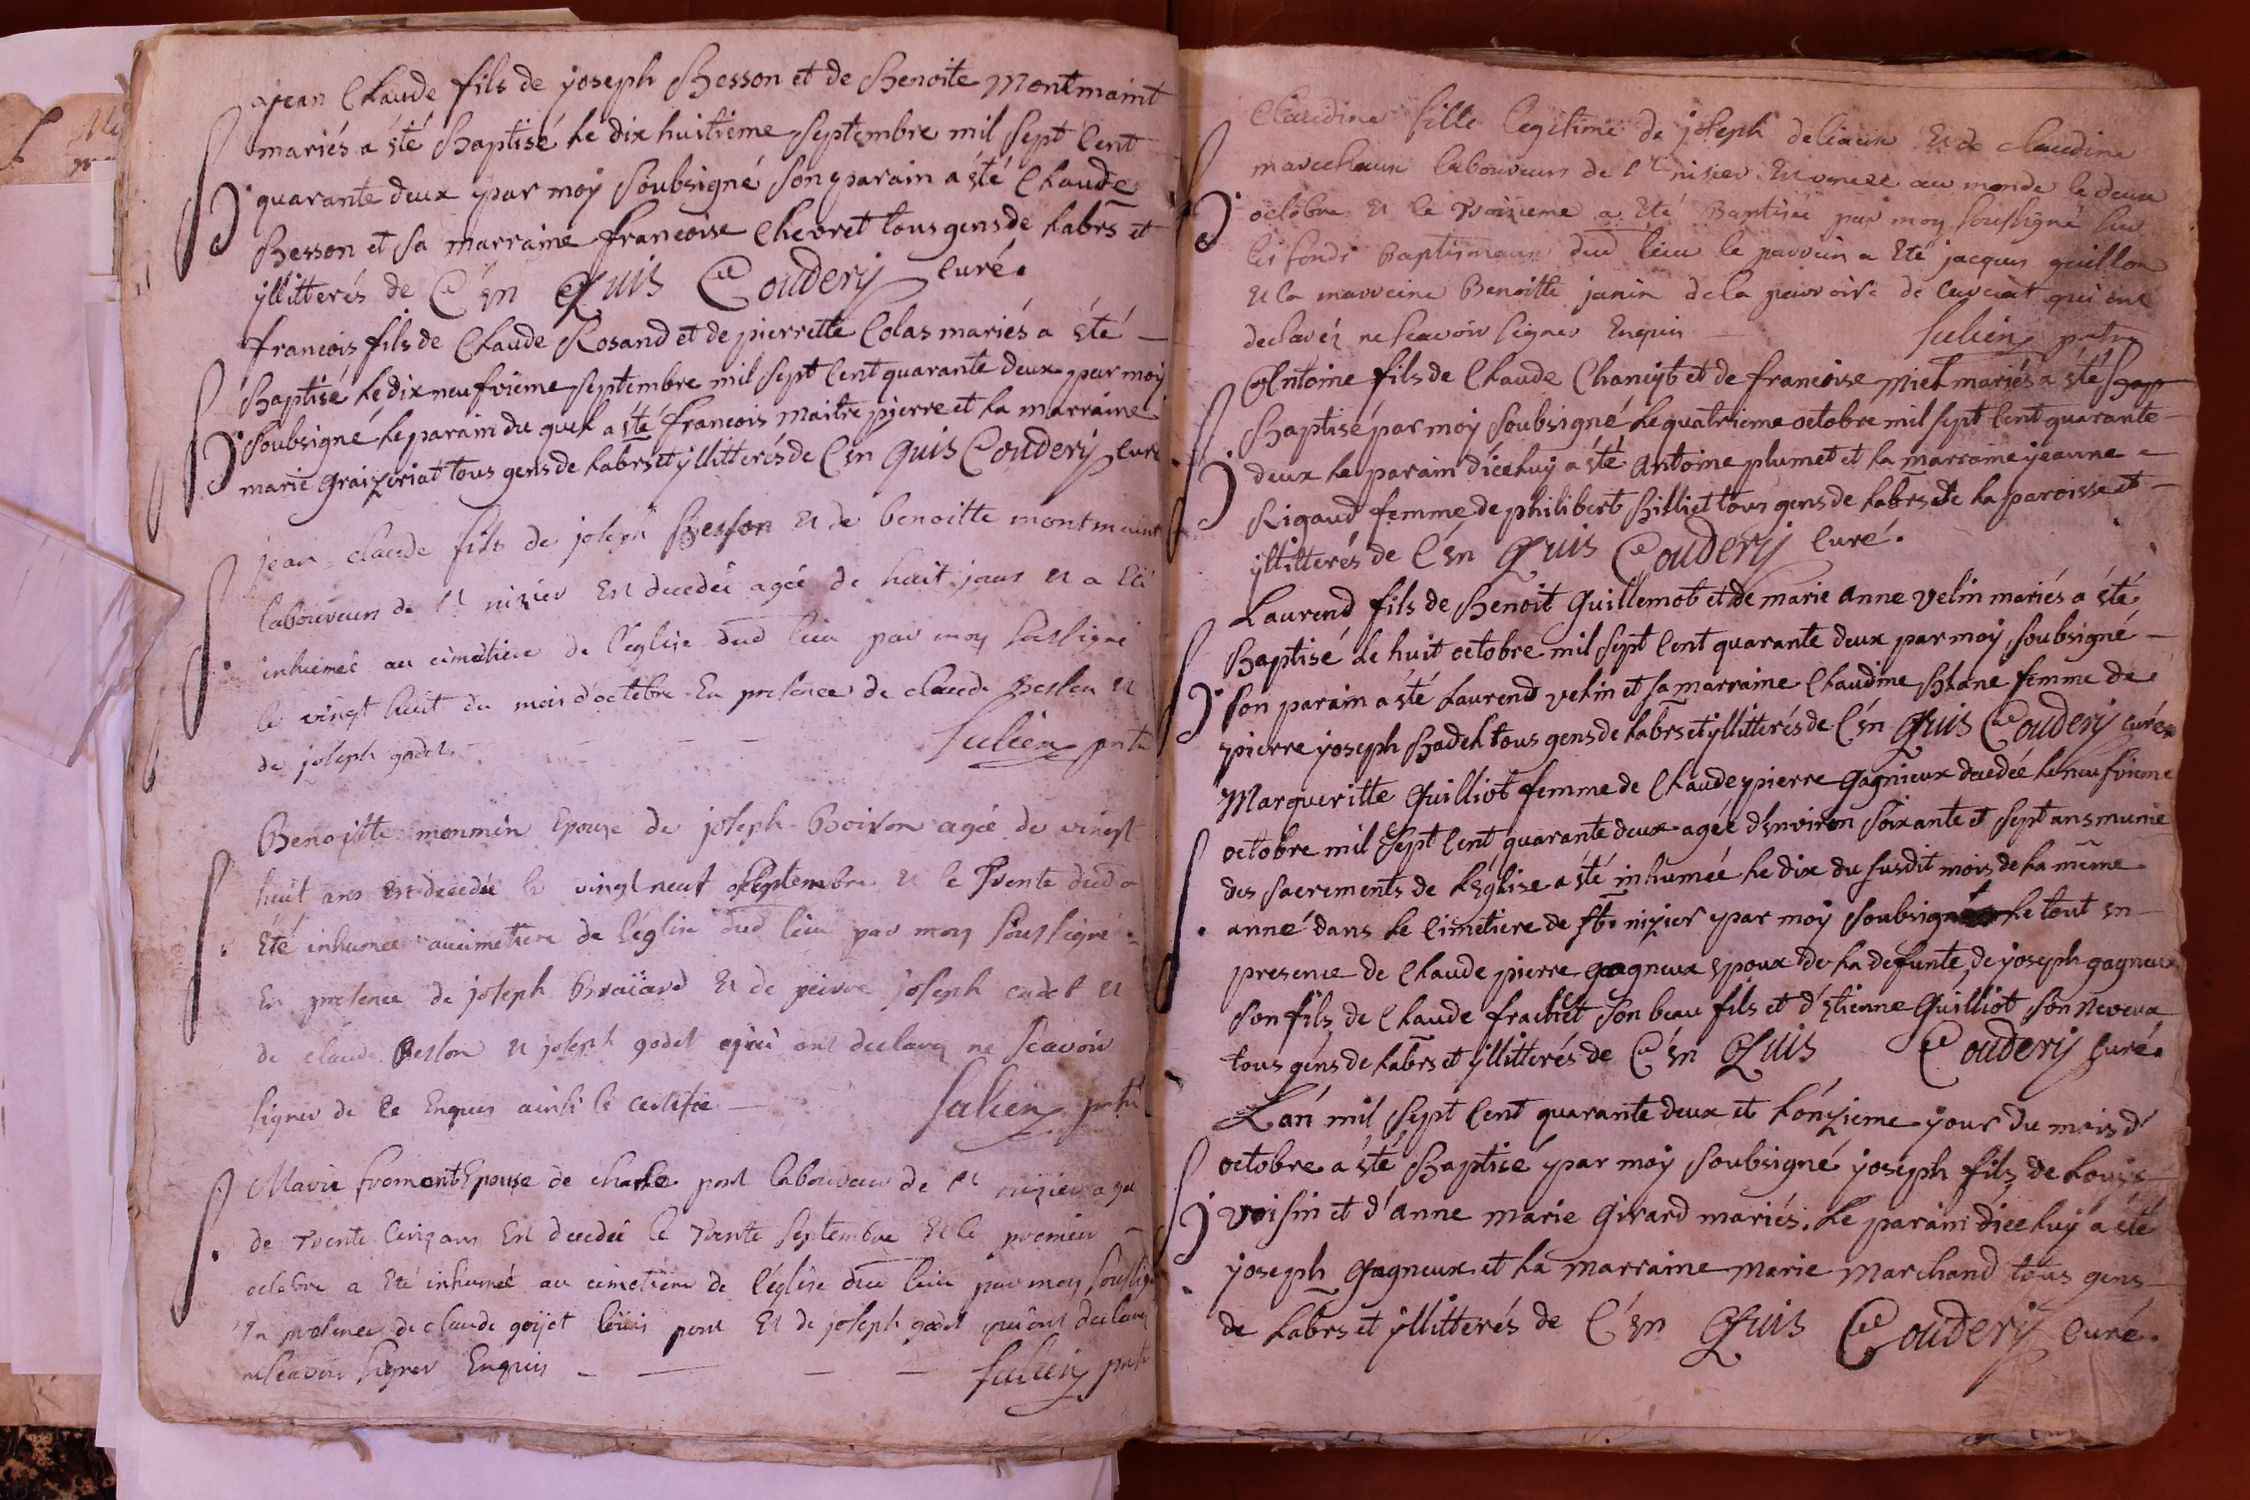 jean Claude fils de joseph Besson et de Benoite Montmaint
mariés a êté Baptisé le dix huitieme septembre mil sept Cent
quarante deux par moÿ soubsigné son parain a êté Claude
Besson et sa marraine francoise Chevret tous gens de labrs et
ÿllitterés de Ce én Quis Couderÿ Curé.
francois fils de Claude Rosand et de pierrette Colas mariés a êté
Baptisé le dix neufvieme septembre mil sept Cent quarante deux par moÿ
soubsigné le parain du quel a êté francois maitre pierre et la marraine
marie graizoriat tous gens de labrs et ÿllitterés de Cén Quis Couderÿ Curé
jean claude fils de joseph Besson et de benoitte montmaint
laboureur de st nizier Est decedé agée de huit jours et a Eté
inhumée au cimetiere de l'eglise dud lieu par moy soussigné
le vingt huit du mois d'octobre En presence de claude Besson et
de joseph godet Julien prtre
Benoitte monmin Epouse de joseph Boiron agée de vingt
huit ans Est decedée le vingt neuf septembre et le Trente dud a
Eté inhumée au cimetiere de l'église dud lieu par moy soussigné
En presence de joseph Braiard et de peirre joseph cadet et
de claude Besson et joseph godet qui ont declaré ne scavoir
signer de Ce Enquis ainsi le certifie
Julien prtre
Marie froment Epouse de charle pont laboureur de st nizier agée
de trente cinq ans Est decedée le trente septembre et le premier
octobre a Eté inhumée au cimetiere de l'église dud lieu par moy soussigné
En presence de claude goyet loüis pont Et de joseph godet qui ont declaré
ne scavoir signer Enquis Julien prtre
Claudine fille legitime de joseph deliaux Et de claudine
marechaux laboureurs de st nizier Est venue au monde le deux
octobre et le troizieme a Eté Baptisée par moy soussigné sur
les fonds Baptismaux dud lieu le parrain a Eté jacques guillon
et la marreine Benoitte janin de la parroisse de qui ont
declarés ne scavoir signer Enquis Julien prtre
Antoine fils de Claude Chancyt et de francoise Miel mariés a êté Bap
Baptisé par moÿ soubsigné le quatrieme octobre mil sept Cent quarante
deux le parain d'iceluÿ a êté Antoine plumet et la marraine jeanne
Rigaud femme de philibert Billiet tous gens de labrs de la paroisse et
ÿllitterés de Cén Quis Couderÿ Curé.
Laurend fils de Benoit Guillemot et de marie anne velin mariés a êté
Baptisé le huit octobre mil sept Cent quarante deux par moÿ soubsigné
son parain a êté Laurend velin et sa marraine Claudine Blane femme de
pierre joseph Badel tous gens de labrs et ÿllitterés de Cén Quis Couderÿ curé
Margueritte Guilliot femme de Claude pierre Gagnieux decedée le neufvieme
octobre mil sept Cent quarante deux agée d'environ soixante et sept ans munie
des sacrements de L'église a êté inhumée le dix du susdit mois de la même
anné dans le Cimetiere de st nizier par moÿ soubsigné le tout en
presence de Claude pierre gagneux époux de la defunte de joseph gagneux
son fils de Claude frachet son beau fils et d'êtienne Guilliot son neveux
tous géns de labrs et ÿllitterés de Ce én Quis Couderÿ Curé.
L'an mil sept Cent quarante deux et L'ónzieme jour du mois d'
octobre a êté Baptisé par moÿ soubsigné joseph fils de Louis
voisin et d'anne marie Girard mariés. le parain d'iceluÿ a êté
joseph Gagneux et la marraine marie Marchand tous gens
de labrs et ÿllitterés de Cén Quis Couderÿ Curé.